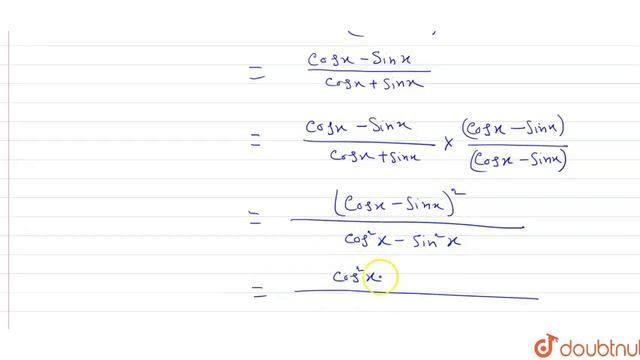 = (cosx - sinx) / (cosx + sinx)
= (cosx - sinx) / (cosx + sinx) × (cosx - sinx) / (cosx - sinx)
= (cosx - sinx)² / (cos²x - sin²x)
= cos²x
doubtnut